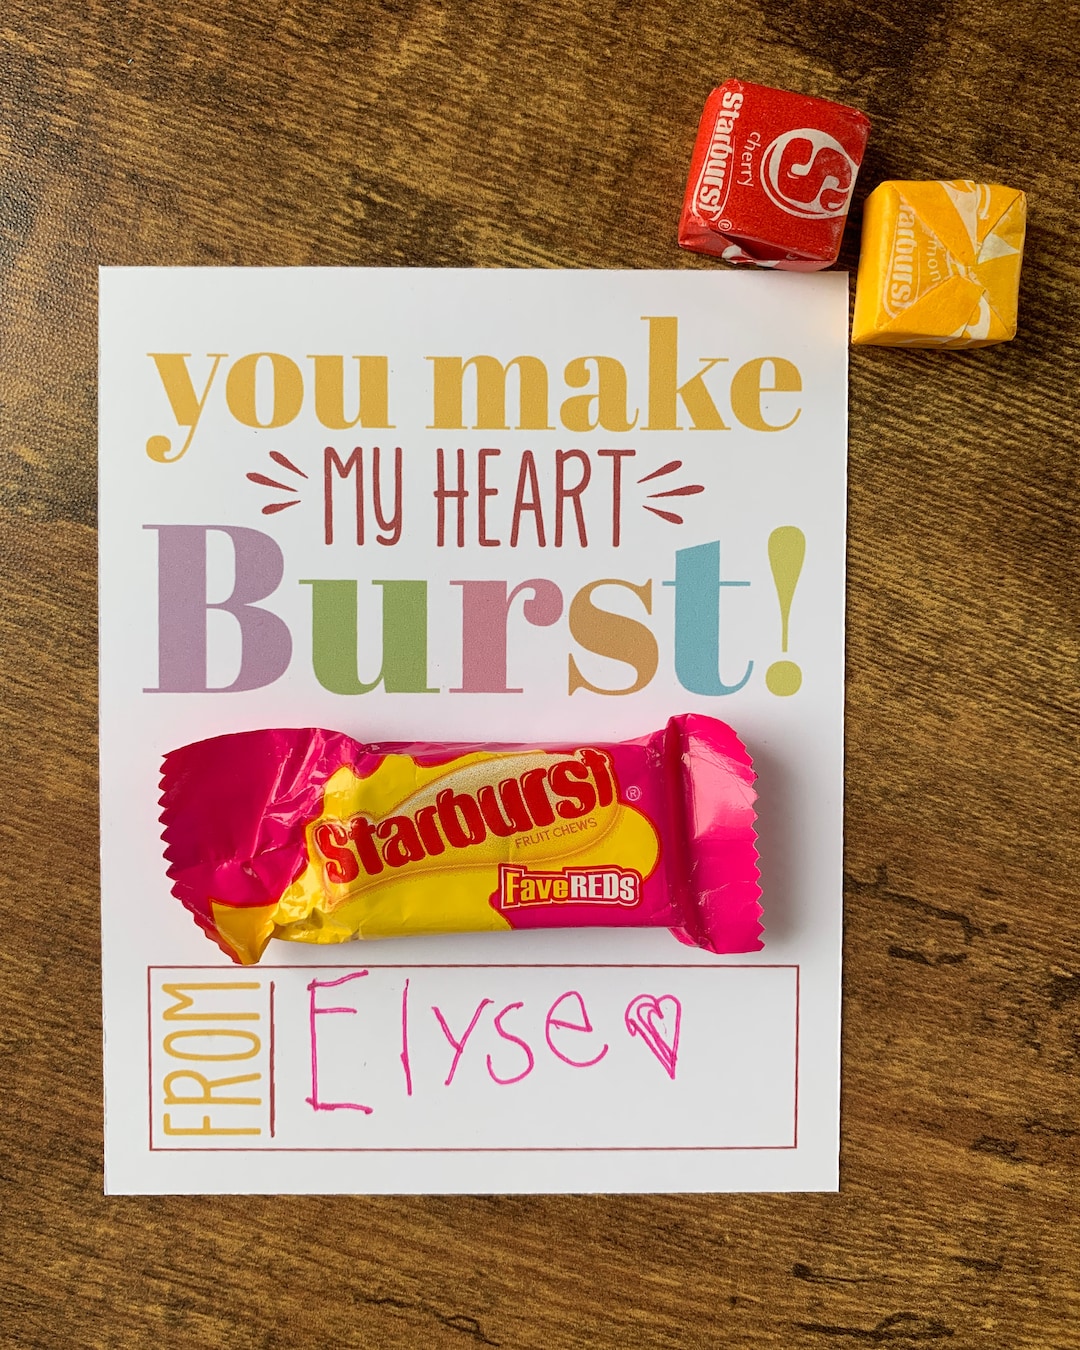 Starburst®
cherry
S
Starburst
lemon
you make
MY HEART
Burst!
Starburst®
FRUIT CHEWS
FaveREDs
FROM
Elyse